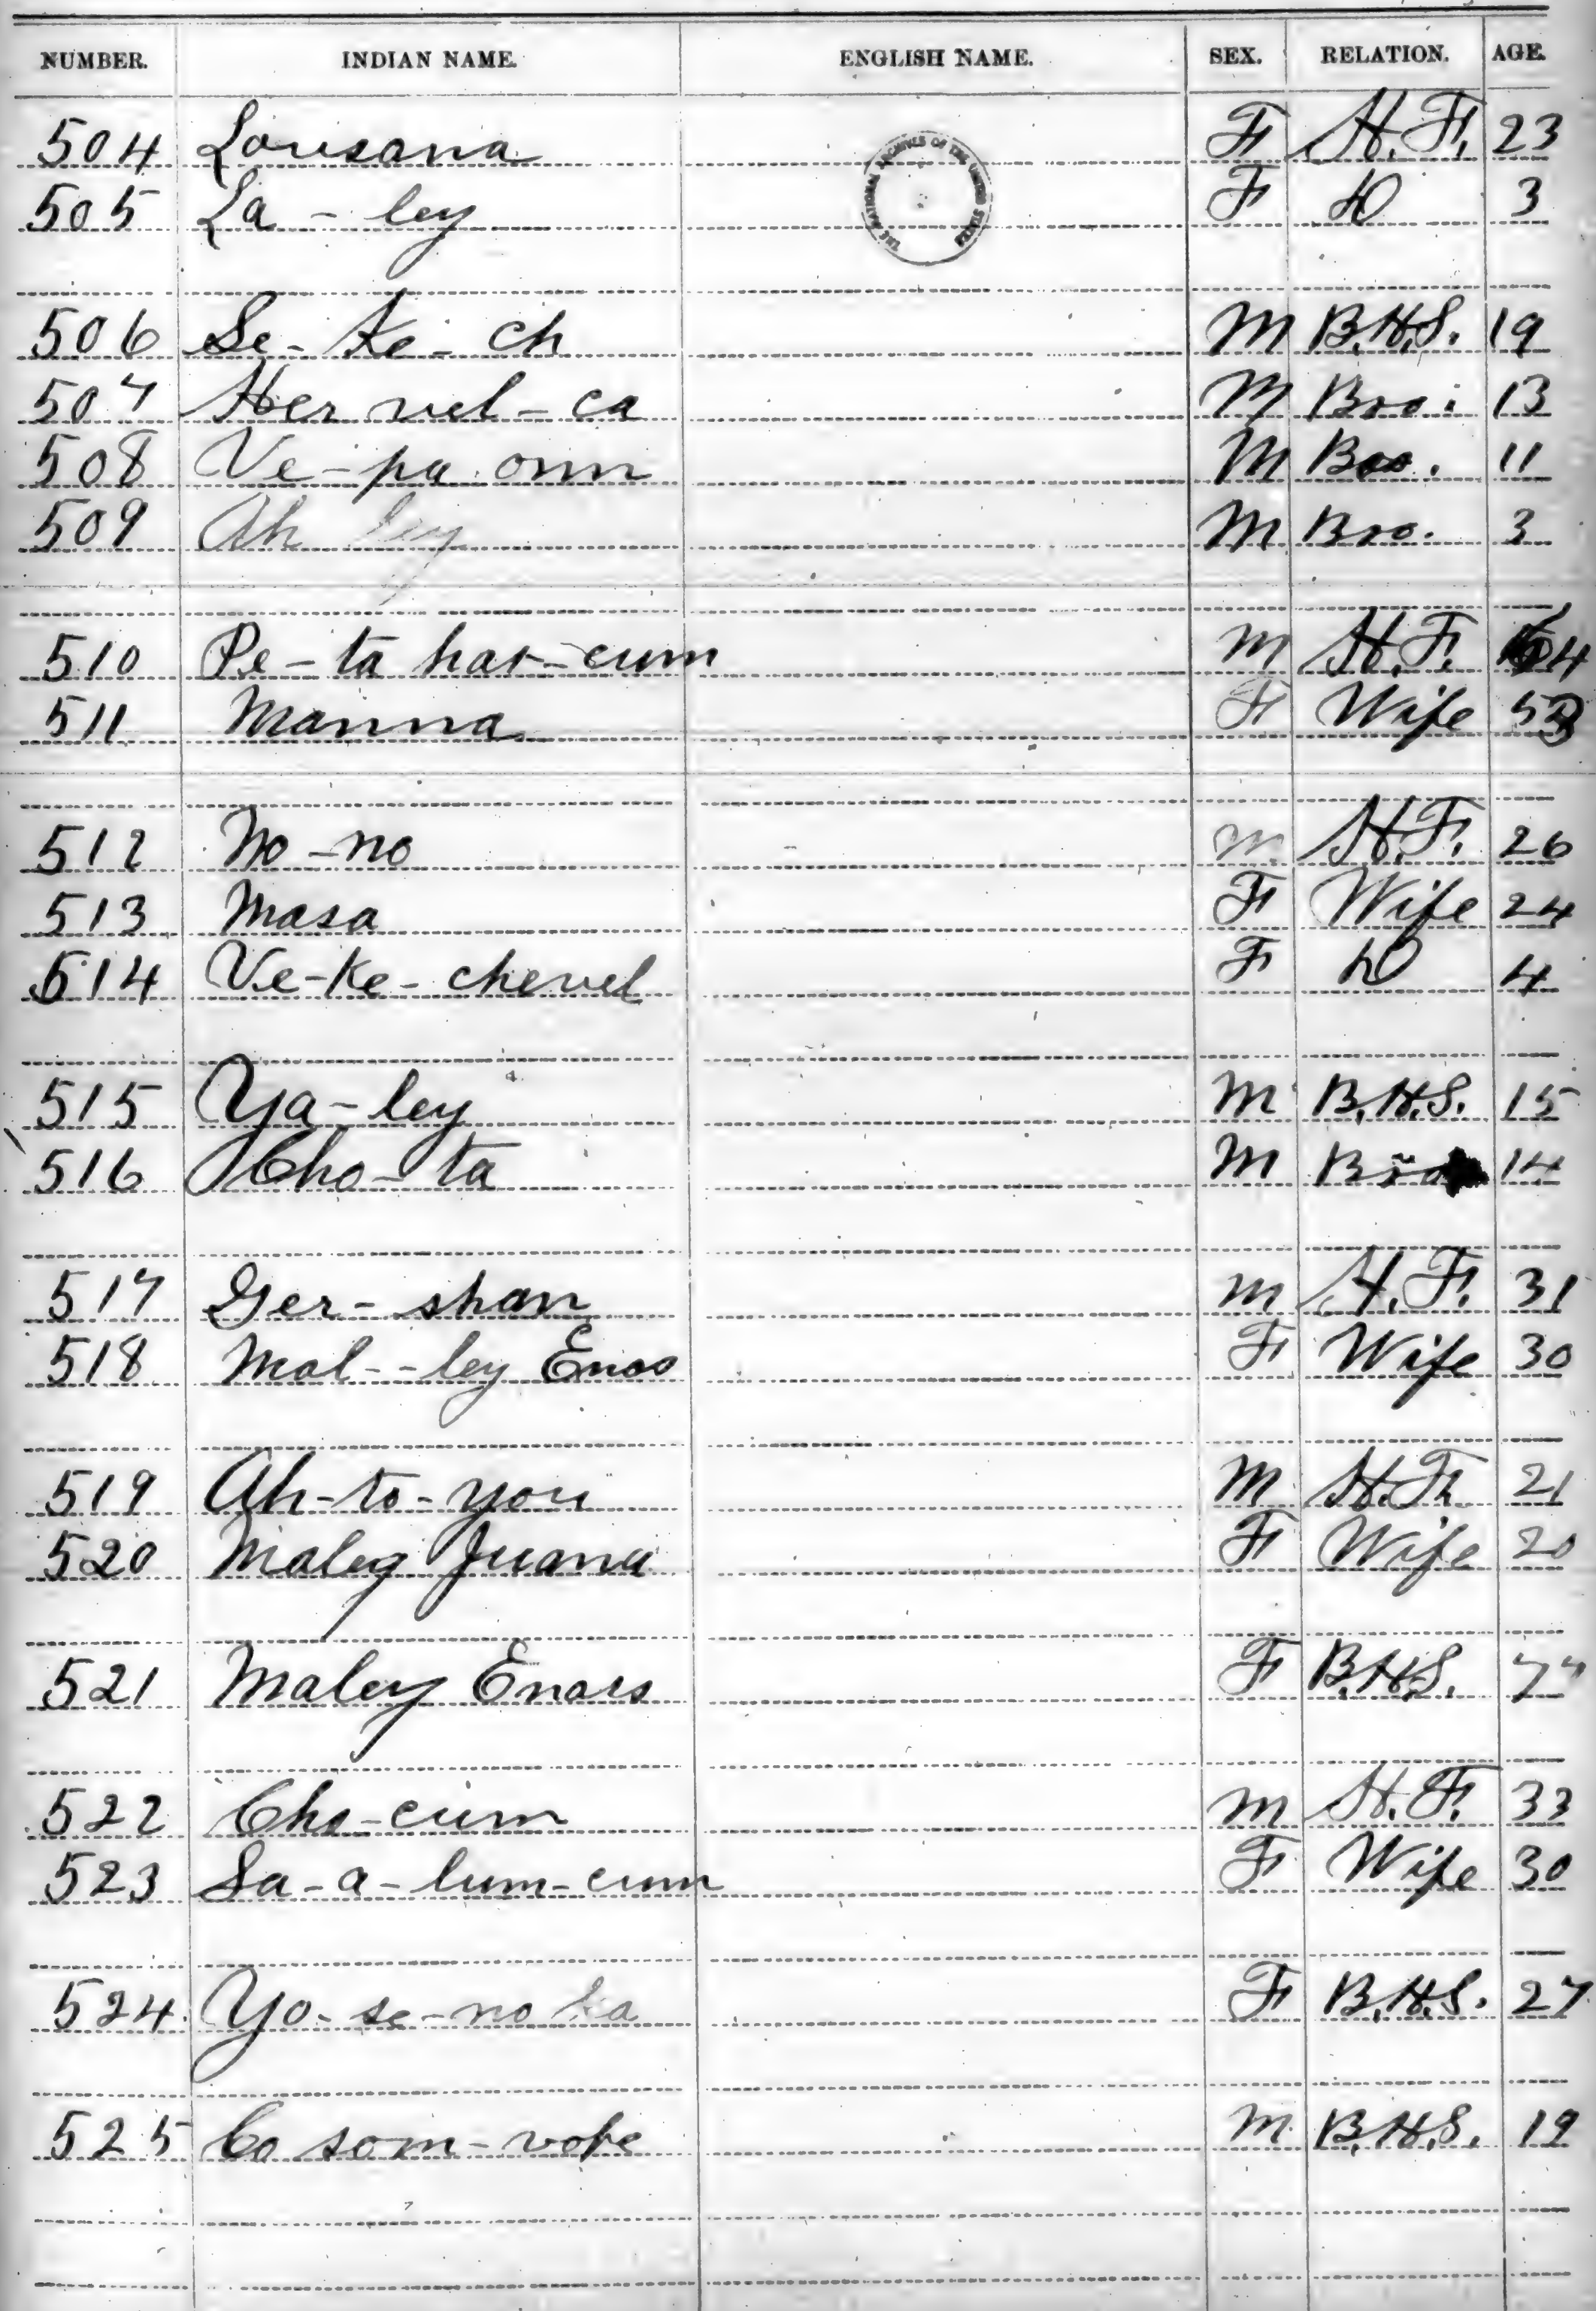 NUMBER. INDIAN NAME. ENGLISH NAME. SEX. RELATION. AGE.
THE NATIONAL ARCHIVES OF THE UNITED STATES
504 Lousana F H.F. 23
505 La - ley F D 3
506 Se - Ke - ch M B.H.S. 19
507 Her vel - ca M Bro. 13
508 Ve - pa onn M Bro. 11
509 Ah ley M Bro. 3
510 Pe - ta har - cum M H.F. 64
511 Manna F Wife 53
512 No - no M H.F. 26
513 Masa F Wife 24
514 Ve - Ke - chevel F D 4
515 Ya - ley M B.H.S. 15
516 Cho - ta M Bro 14
517 Ger - shan M H.F. 31
518 Mal - - ley Enos F Wife 30
519 Ah - to - you M H.F. 21
520 Maley Juana F Wife 20
521 Maley Enars F B.H.S. 77
522 Cho - cum M H.F. 33
523 Sa - a - lum - cum F Wife 30
524 Yo - se - no F B.H.S. 27
525 Co som - vope M B.H.S. 19